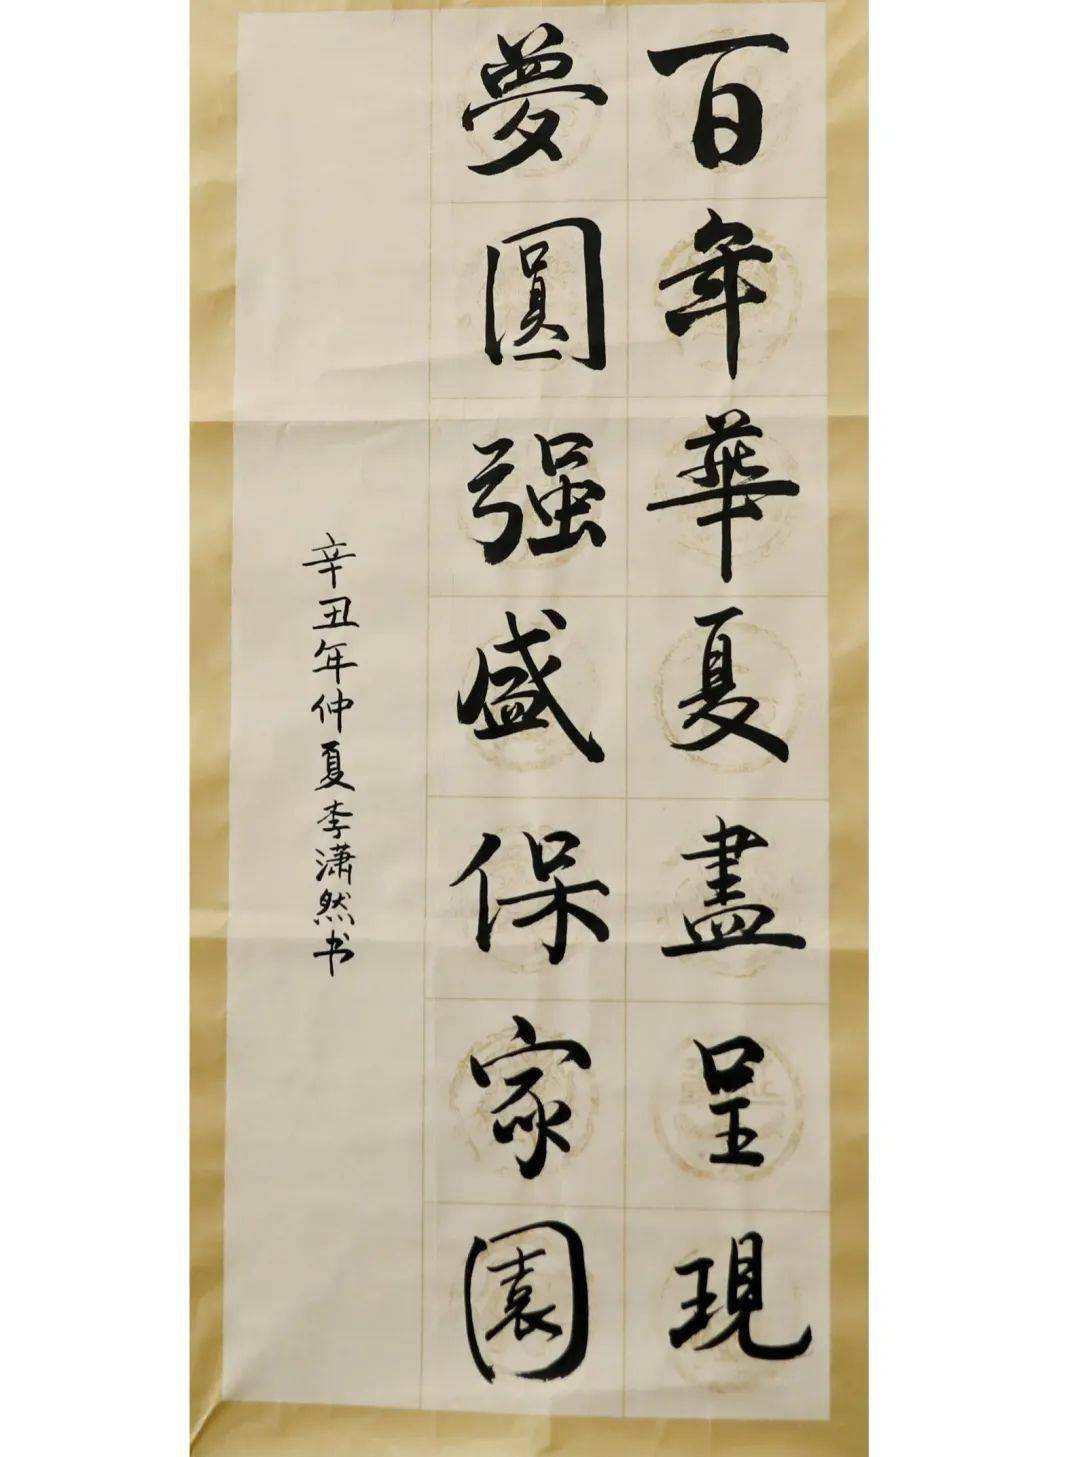 百年華夏盡呈現
夢圓强盛保家園
辛丑年仲夏李潇然书